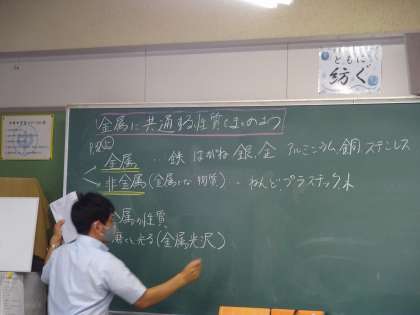 ともに
紡ぐ
金属に共通する性質をまとめよう
金属 ‥ 鉄 はがね 銀、金 アルミニウム 銅 ステンレス
非金属(金属でない物質)・ねんどプラスチック、木
金属の性質
磨くと光る(金属光沢)